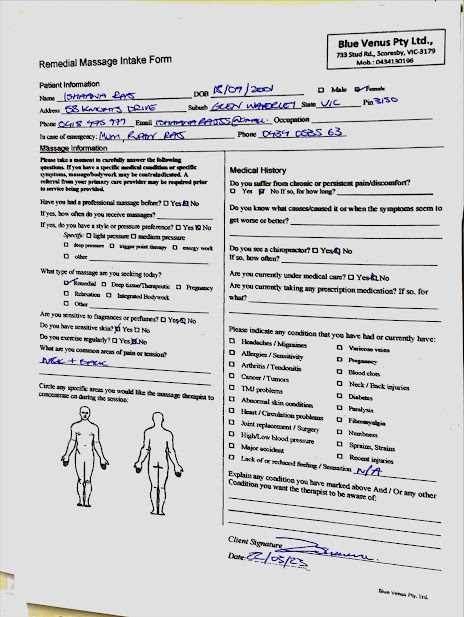 Blue Venus Pty Ltd.,
733 Stud Rd., Scoresby, VIC-3179
Mob.: 0434130196
Remedial Massage Intake Form
Patient Information
Name ISHAANA RAJ DOB 18/09/2001 Male Female
Address 58 KNIGHTS DRIVE Suburb GLEN WAVERLEY State VIC Pin 3150
Phone Email Occupation
In case of emergency: MUM, RAJ Phone
Massage Information
Please take a moment to carefully answer the following
questions. If you have a specific medical condition or specific
symptoms, massage/bodywork may be contraindicated. A
referral from your primary care provider may be required prior
to service being provided.
Have you had a professional massage before? Yes No
If yes, how often do you receive massages?
If yes, do you have a style or pressure preference? Yes No
Specify: light pressure medium pressure
deep pressure trigger point therapy energy work
other
What type of massage are you seeking today?
Remedial Deep tissue/Therapeutic Pregnancy
Relaxation Integrated Bodywork
Other
Are you sensitive to fragrances or perfumes? Yes No
Do you have sensitive skin? Yes No
Do you exercise regularly? Yes No
What are you common areas of pain or tension?
NECK + BACK
Circle any specific areas you would like the massage therapist to
concentrate on during the session:
Medical History
Do you suffer from chronic or persistent pain/discomfort?
Yes No If so, for how long?
Do you know what causes/caused it or when the symptoms seem to
get worse or better?
Do you see a chiropractor? Yes No
If so, how often?
Are you currently under medical care? Yes No
Are you currently taking any prescription medication? If so, for
what?
Please indicate any condition that you have had or currently have:
Headaches / Migraines Varicose veins
Allergies / Sensitivity Pregnancy
Arthritis / Tendonitis Blood clots
Cancer / Tumors Neck / Back injuries
TMJ problems Diabetes
Abnormal skin condition Paralysis
Heart / Circulation problems Fibromyalgia
Joint replacement / Surgery Numbness
High/Low blood pressure Sprains, Strains
Major accident Recent injuries
Lack of or reduced feeling / Sensation N/A
Explain any condition you have marked above And / Or any other
Condition you want the therapist to be aware of:
Client Signature
Date 22/03/23
Blue Venus Pty. Ltd.